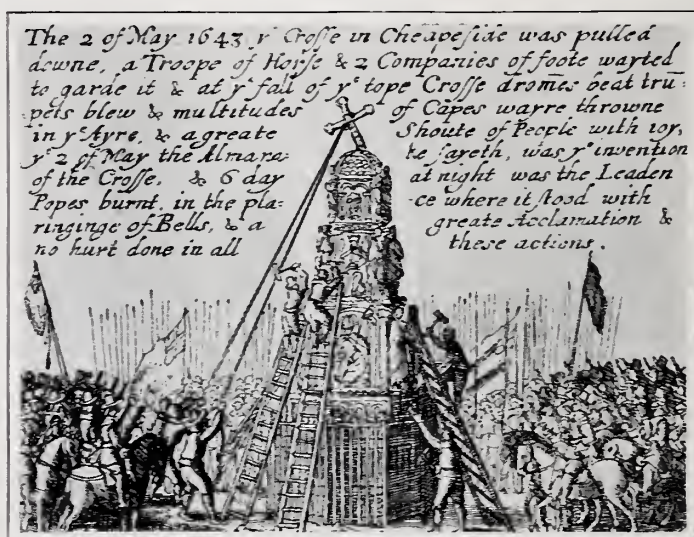 The 2 of May 1643 yͤ Crosse in Cheapeside was pulled
downe, a Troope of Horse & 2 Companies of foote wayted
to garde it & at yͤ fall of yͤ tope Crosse dromes beat trū-
pets blew & multitudes of Capes wayre throwne
in yͤ Ayre, & a greate Shoute of People with ioy,
yͤ 2 of May the Almanacke sayeth, was yͤ invention
of the Crosse, & 6 day at night was the Leaden
Popes burnt, in the place where it stood with
ringinge of Bells, & a greate Acclamation &
no hurt done in all these actions.